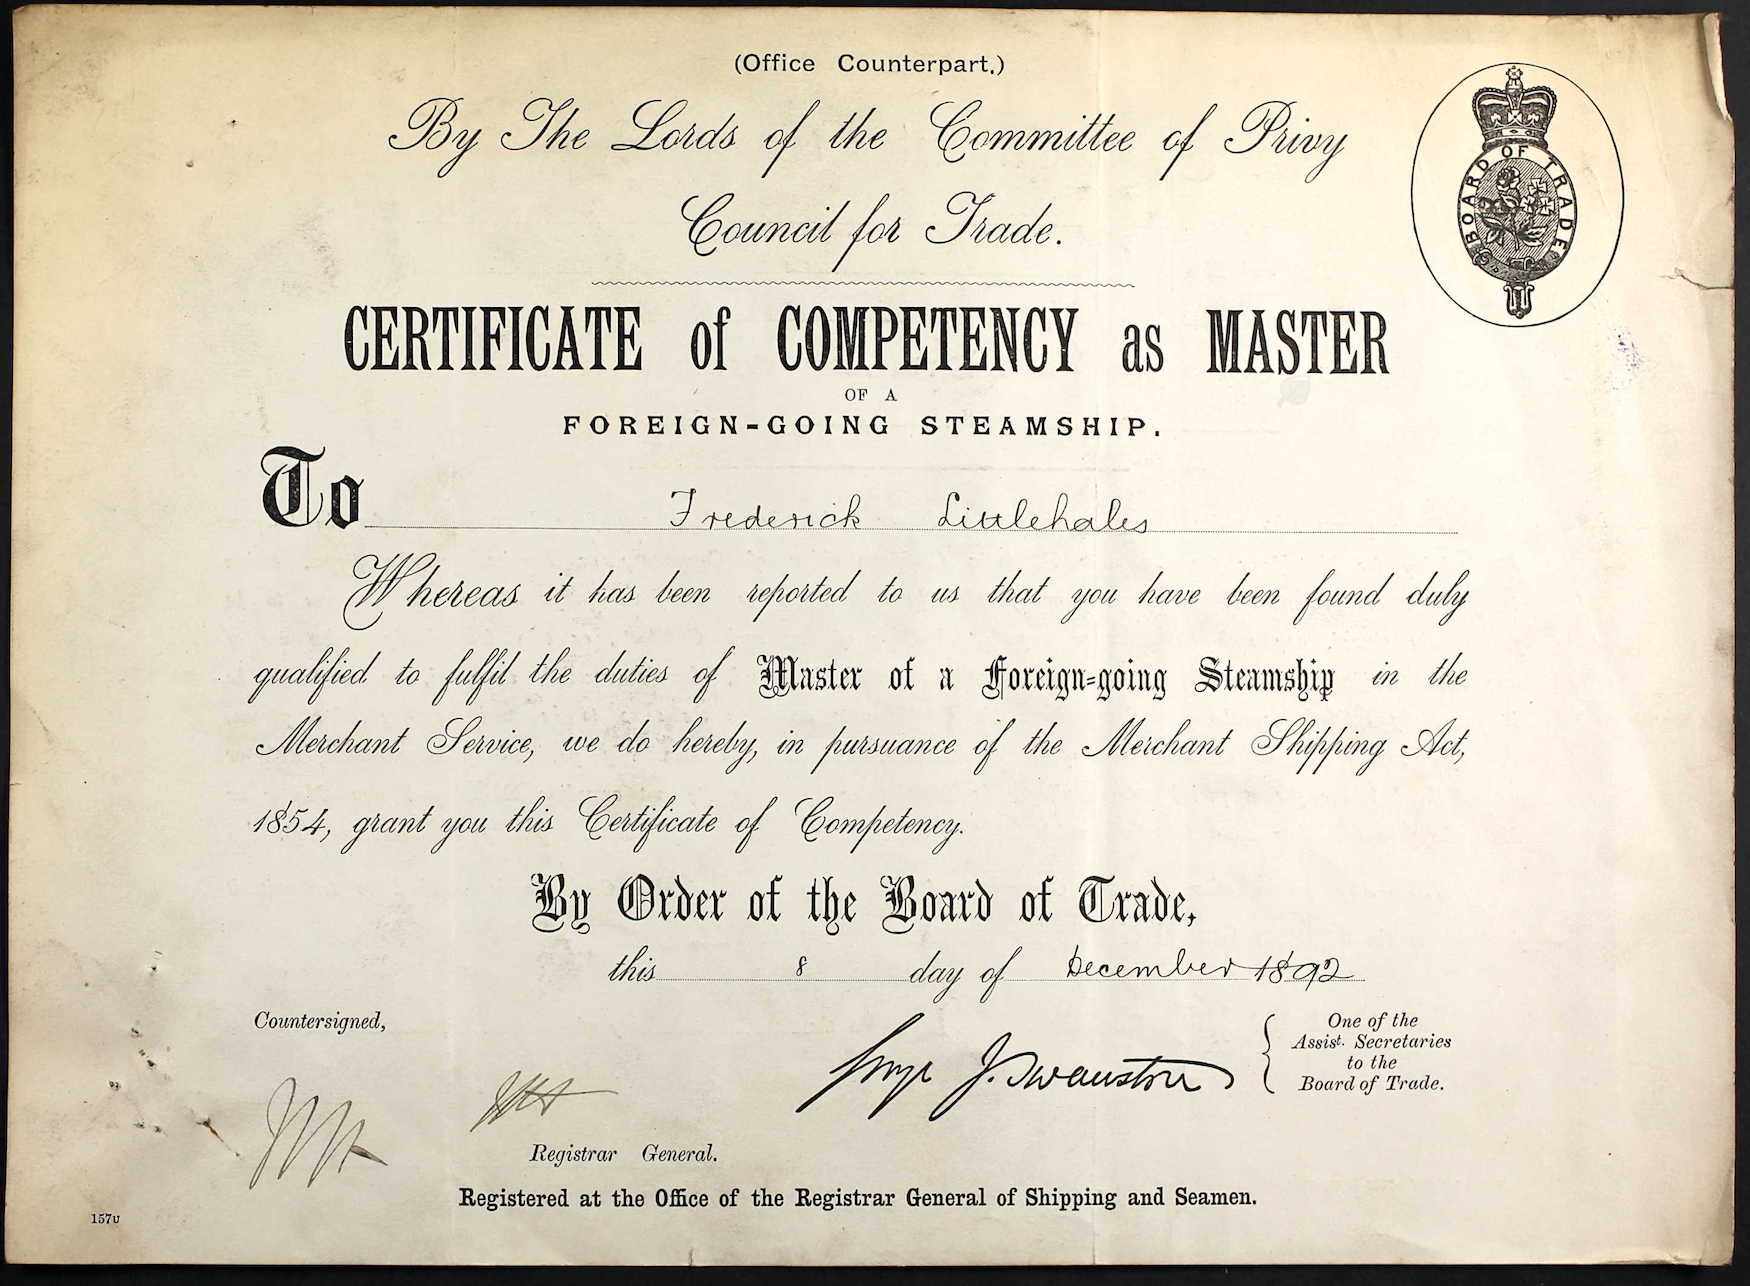 (Office Counterpart.)
By The Lords of the Committee of Privy
Council for Trade.
BOARD OF TRADE
CERTIFICATE of COMPETENCY as MASTER
OF A
FOREIGN-GOING STEAMSHIP.
To Frederick Littlehales
Whereas it has been reported to us that you have been found duly
qualified to fulfil the duties of Master of a Foreign-going Steamship in the
Merchant Service, we do hereby, in pursuance of the Merchant Shipping Act,
1854, grant you this Certificate of Competency.
By Order of the Board of Trade,
this 8 day of December 1892
Countersigned,
J. Swanston
One of the
Assist. Secretaries
to the
Board of Trade.
Registrar General.
Registered at the Office of the Registrar General of Shipping and Seamen.
157U